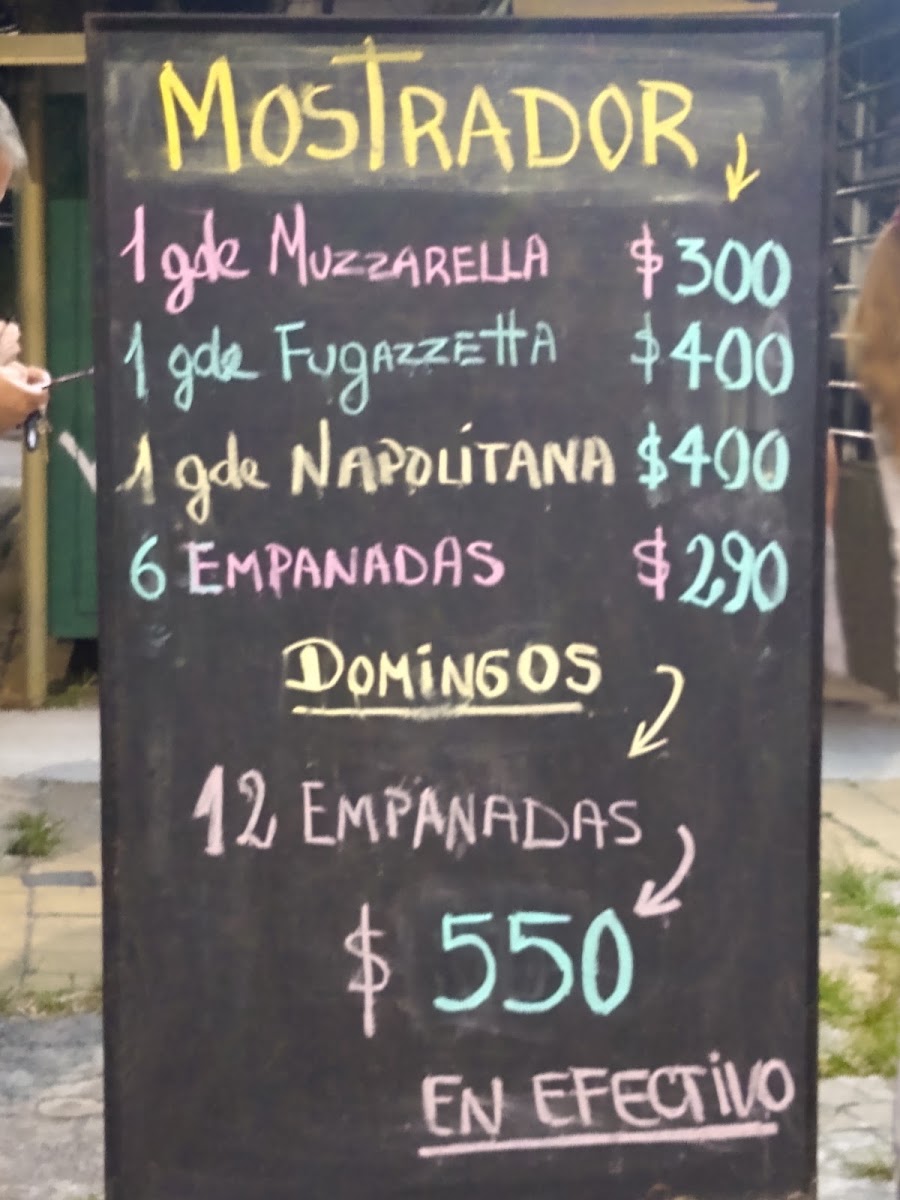 MOSTRADOR
1 gde MUZZARELLA $300
1 gde FUGAZZETTA $400
1 gde NAPOLITANA $400
6 EMPANADAS $290
DOMINGOS
12 EMPANADAS
$ 550
EN EFECTIVO